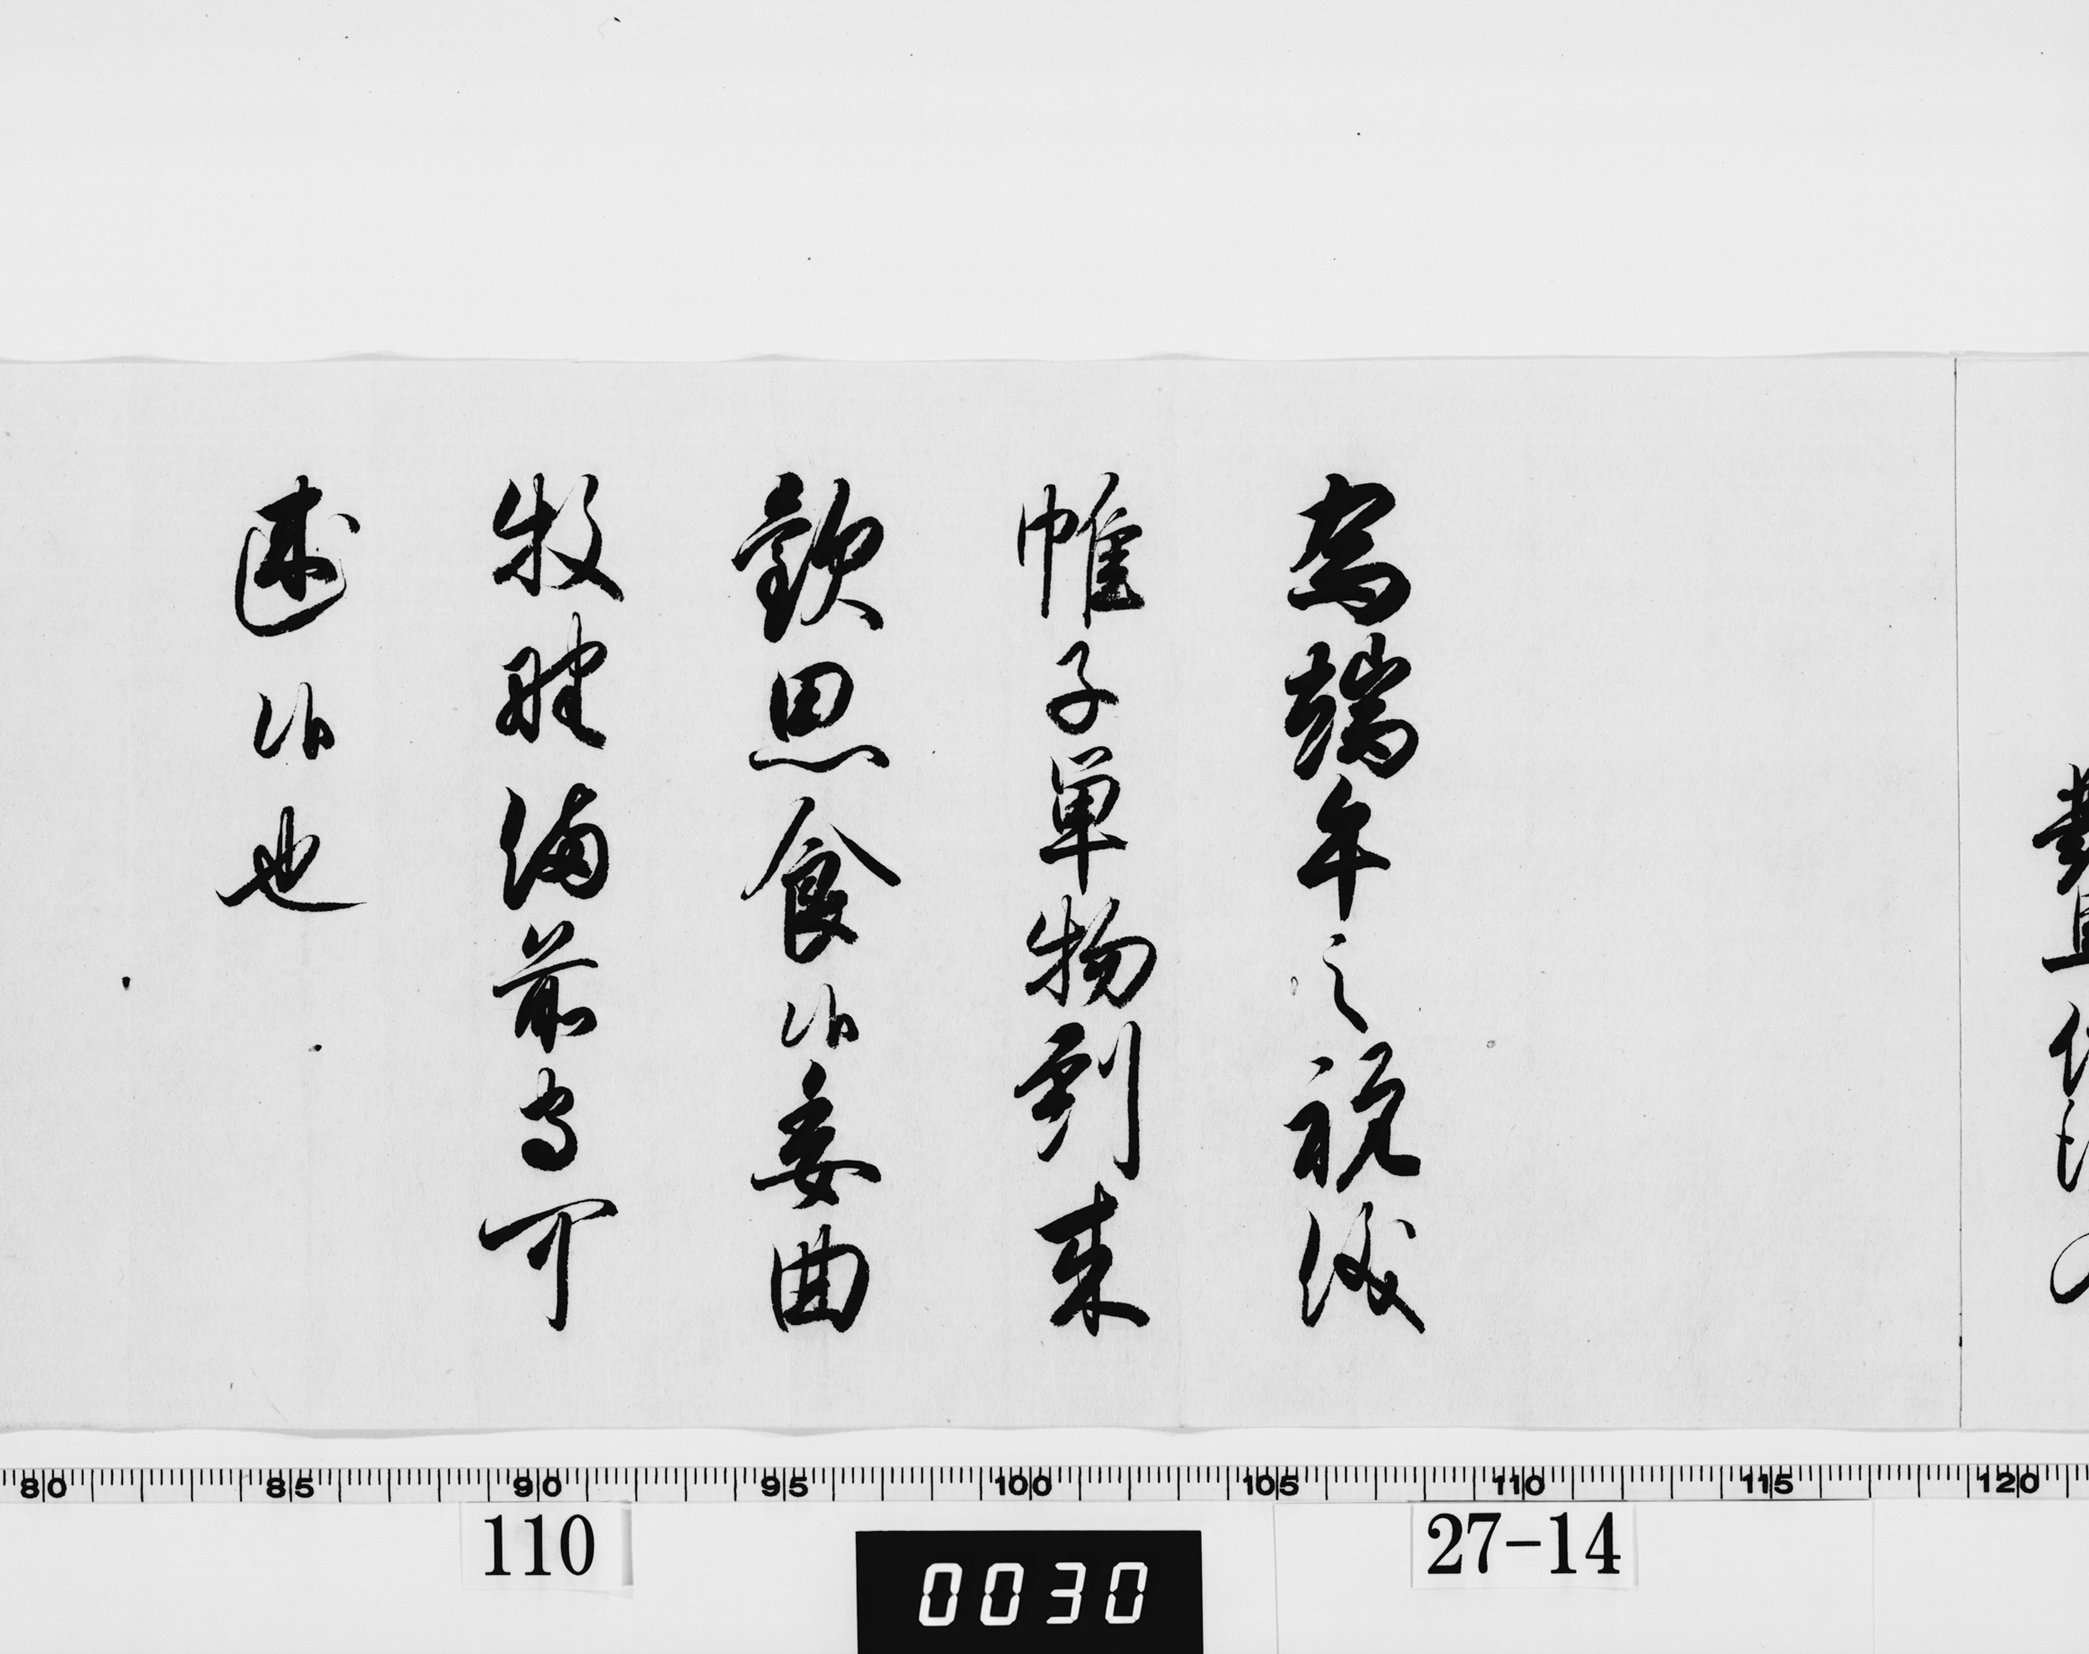 為端午之祝儀
帷子単物到来
歓思食候委曲
牧野備前守可
述候也
80 85 90 95 100 105 110 115 120
110
0030
27-14